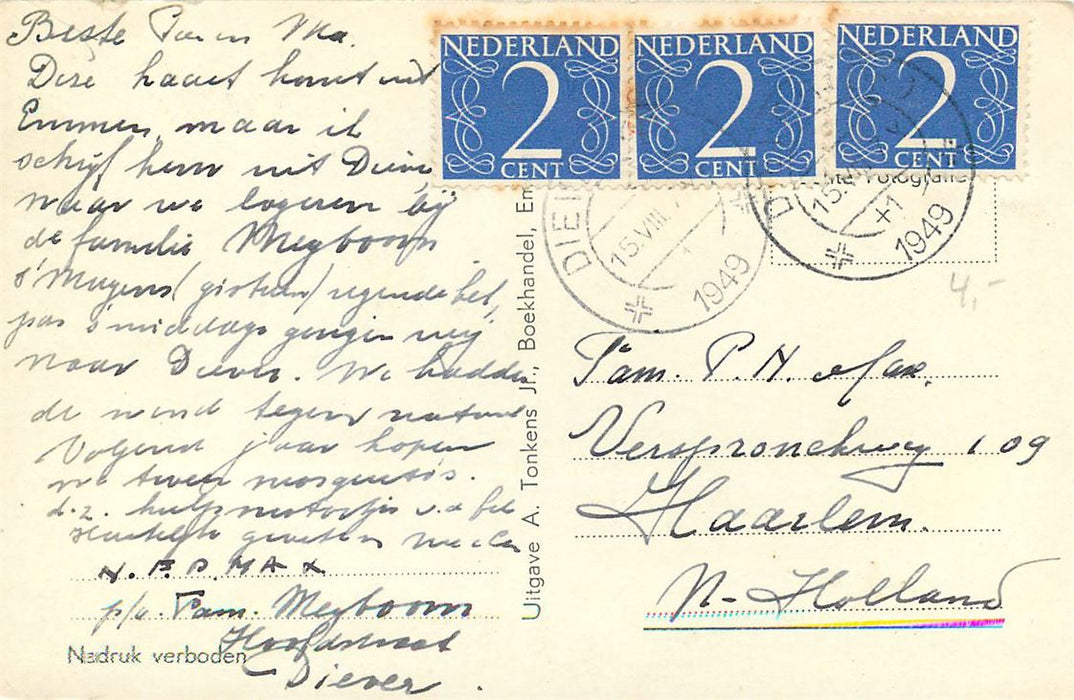 Beste Pa en Ma.
Deze kaart komt uit
Emmen, maar ik
schrijf hem uit Diever,
waar we logeren bij
de familie Meyboom
's Morgens (gisteren) regende het,
pas 's middags gingen wij
naar Diever. We hadden
de wind tegen natuur
Volgend jaar hopen
we twee mosquito's.
d.z. hulpmotortjes v.d. fiets
Hartelijke groeten
MAX
p/a. Fam. Meyboom
Hoofdstraat
Diever.
Nadruk verboden
Uitgave A. Tonkens Jr., Boekhandel, Em
NEDERLAND
2
CENT
NEDERLAND
2
CENT
NEDERLAND
2
CENT
Fotografie
DIE
15.VIII.
1949
D
15.
+1
1949
4,-
Fam. P.H. Max.
Verspronckweg 109
Haarlem.
N-Holland